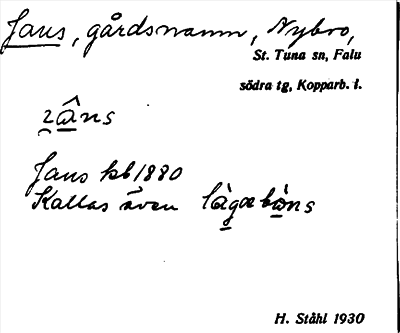 Jans, gårdsnamn, Nybro,
St. Tuna sn, Falu
södra tg, Kopparb. l.
Jans kb 1880
Kallas även
H. Ståhl 1930